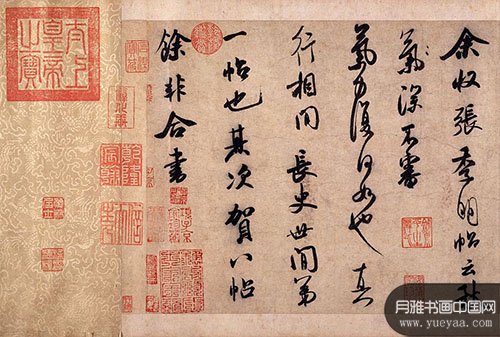 余收張季明帖云秋
氣深不審
氣力復何如也真
行相間長史世間第
一帖也其次賀八帖
餘非合書
太上
皇帝
之寶
月雅书画中国网
www.yueyaa.com